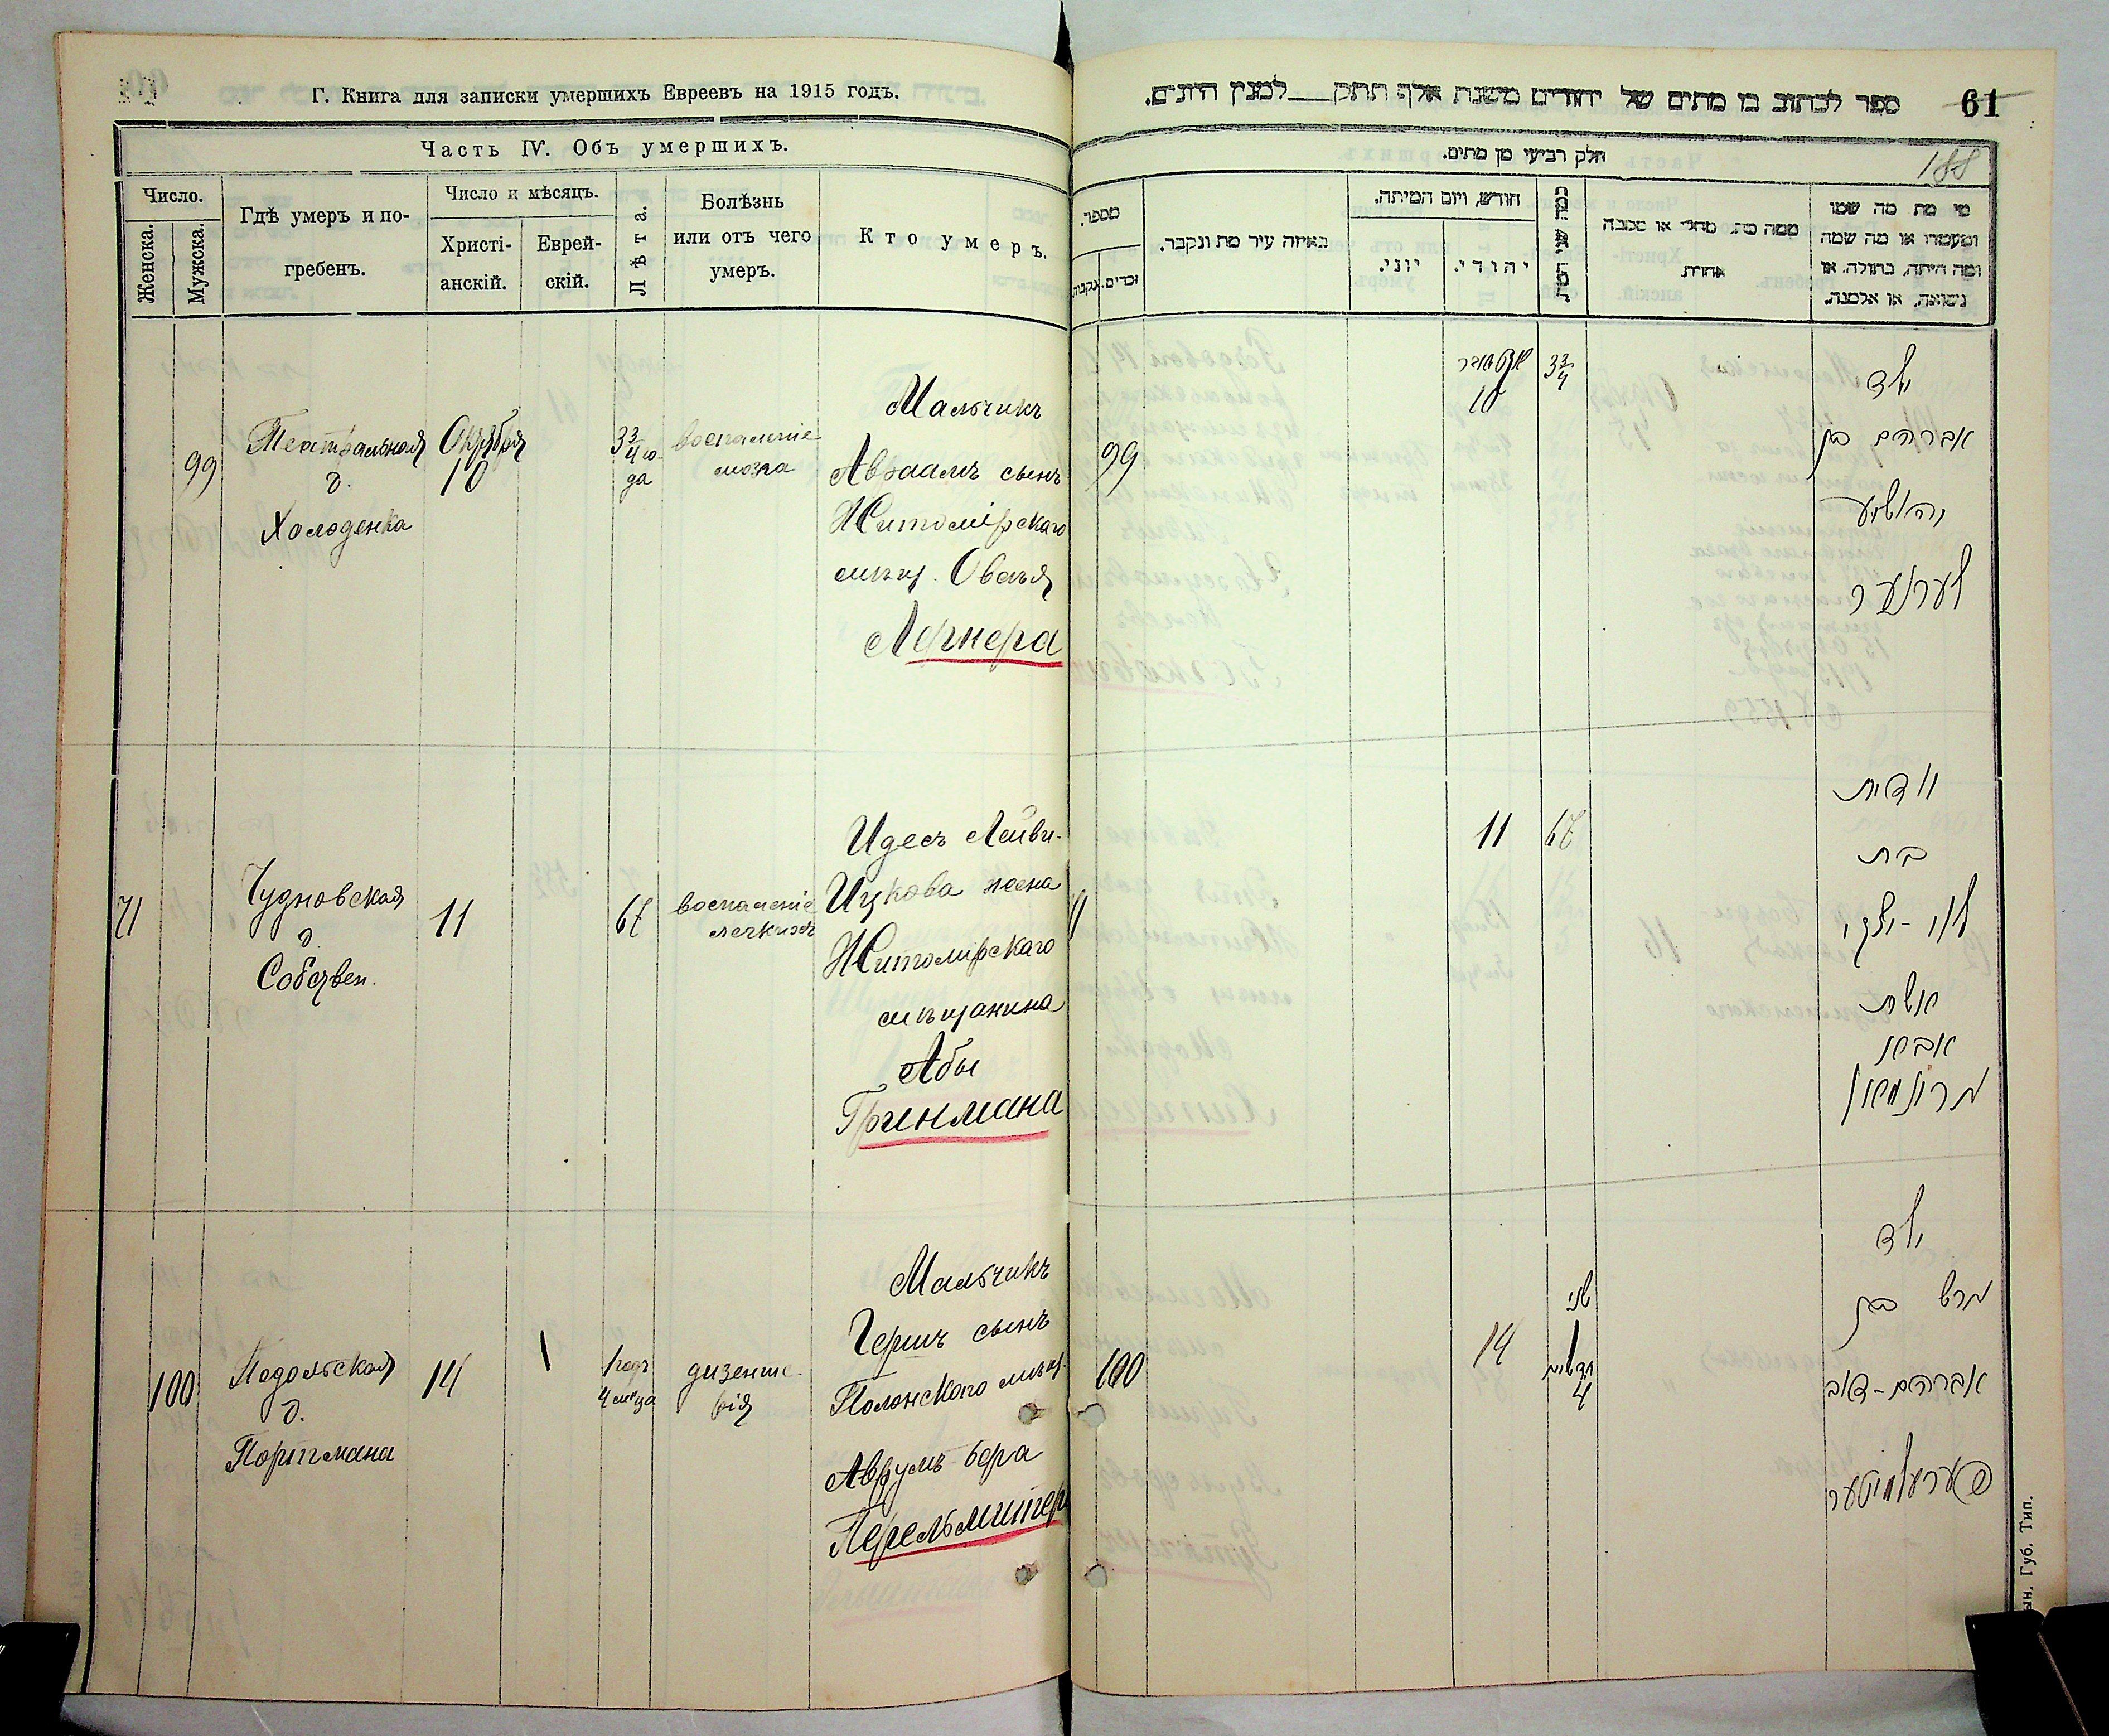 Г. Книга для записки умершихъ Евреевъ на 1915 годъ.
Часть IV. Объ умершихъ.
Число.
Женска.
Мужска.
Гдѣ умеръ и по-
гребенъ.
Число и мѣсяцъ.
Христі-
анскій.
Еврей-
скій.
Лѣта.
Болѣзнь
или отъ чего
умеръ.
Кто умеръ.
99
Театральная
д.
Холоденка
Октября
10
3 3/4 го-
да
воспаленіе
мозга
Мальчикъ
Авраамъ сынъ
Житомірскаго
мѣщ. Овсея
Лернера
71
Чудновская
д.
Собствен.
11
67
воспаленіе
легкихъ
Идесъ Лейви-
Ицкова жена
Житомирскаго
мѣщанина
Абы
Гринмана
100
Подольская
д.
Портмана
14
1
1 годъ
4 мѣ-ца
дизенте-
рія
Мальчикъ
Гершъ сынъ
Полонского мѣщ.
Аврумъ-Бера
Перельмитера
ספר לכתוב בו מתים של יהודים משנת אלף תתק למנין היונים.
61
188
חלק רביעי מן מתים.
מספר.
נקבות
זכרים.
באיזה עיר מת ונקבר.
חודש, ויום המיתה.
יוני.
יהודי.
ממה מת. מחלי או סבה
אחרת
מי מת מה שמו
ומעמדו או מה שמה
ומה היתה, בתולה, או
נשואה, או אלמנה.
99
אקטאבר
10
3 3/4
ילד
אברהם בן
יהושיע
לערנער
11
67
יודית
בת
לוי-יצקי
אשת
אבא
גרונמאן
100
14
שני
1
חדשים
4
ילד
הרש בן
אברהם-דוב
פערעלמיטער
ын. Губ. Тип.